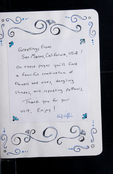 Greetings from
San Mateo, California, USA!
On these pages you'll find
a fanciful combination of
flowers and vines, dangling
shapes, and repeating patterns.
Thank you for your
visit. Enjoy!